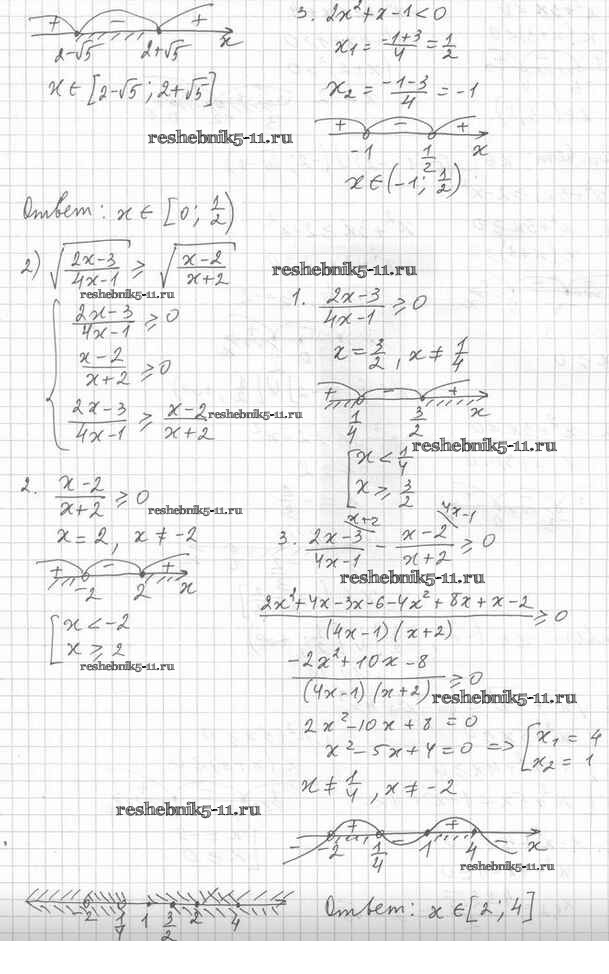 + − +
2−√5 2+√5 x
x ∈ [2−√5; 2+√5]
reshebnik5-11.ru
3. 2x²+x−1<0
x₁ = (−1+3)/4 = 1/2
x₂ = (−1−3)/4 = −1
+ − +
−1 1/2 x
x ∈ (−1; 1/2)
Ответ: x ∈ [0; 1/2)
2) √((2x−3)/(4x−1)) ≥ √((x−2)/(x+2))
reshebnik5-11.ru
reshebnik5-11.ru
{ (2x−3)/(4x−1) ≥ 0
(x−2)/(x+2) ≥ 0
(2x−3)/(4x−1) ≥ (x−2)/(x+2)
reshebnik5-11.ru
1. (2x−3)/(4x−1) ≥ 0
x = 3/2, x ≠ 1/4
+ − +
1/4 3/2 x
reshebnik5-11.ru
[ x < 1/4
x ≥ 3/2
2. (x−2)/(x+2) ≥ 0
reshebnik5-11.ru
x = 2, x ≠ −2
+ − +
−2 2 x
[ x < −2
x ≥ 2
reshebnik5-11.ru
x+2 4x−1
3. (2x−3)/(4x−1) − (x−2)/(x+2) ≥ 0
reshebnik5-11.ru
(2x²+4x−3x−6−4x²+8x+x−2)/((4x−1)(x+2)) ≥ 0
(−2x²+10x−8)/((4x−1)(x+2)) ≥ 0
reshebnik5-11.ru
2x²−10x+8 = 0
x²−5x+4 = 0 => [ x₁ = 4
x₂ = 1
x ≠ 1/4, x ≠ −2
reshebnik5-11.ru
− + − + −
−2 1/4 1 4 x
reshebnik5-11.ru
−2 1/4 1 3/2 2 4
Ответ: x ∈ [2; 4]